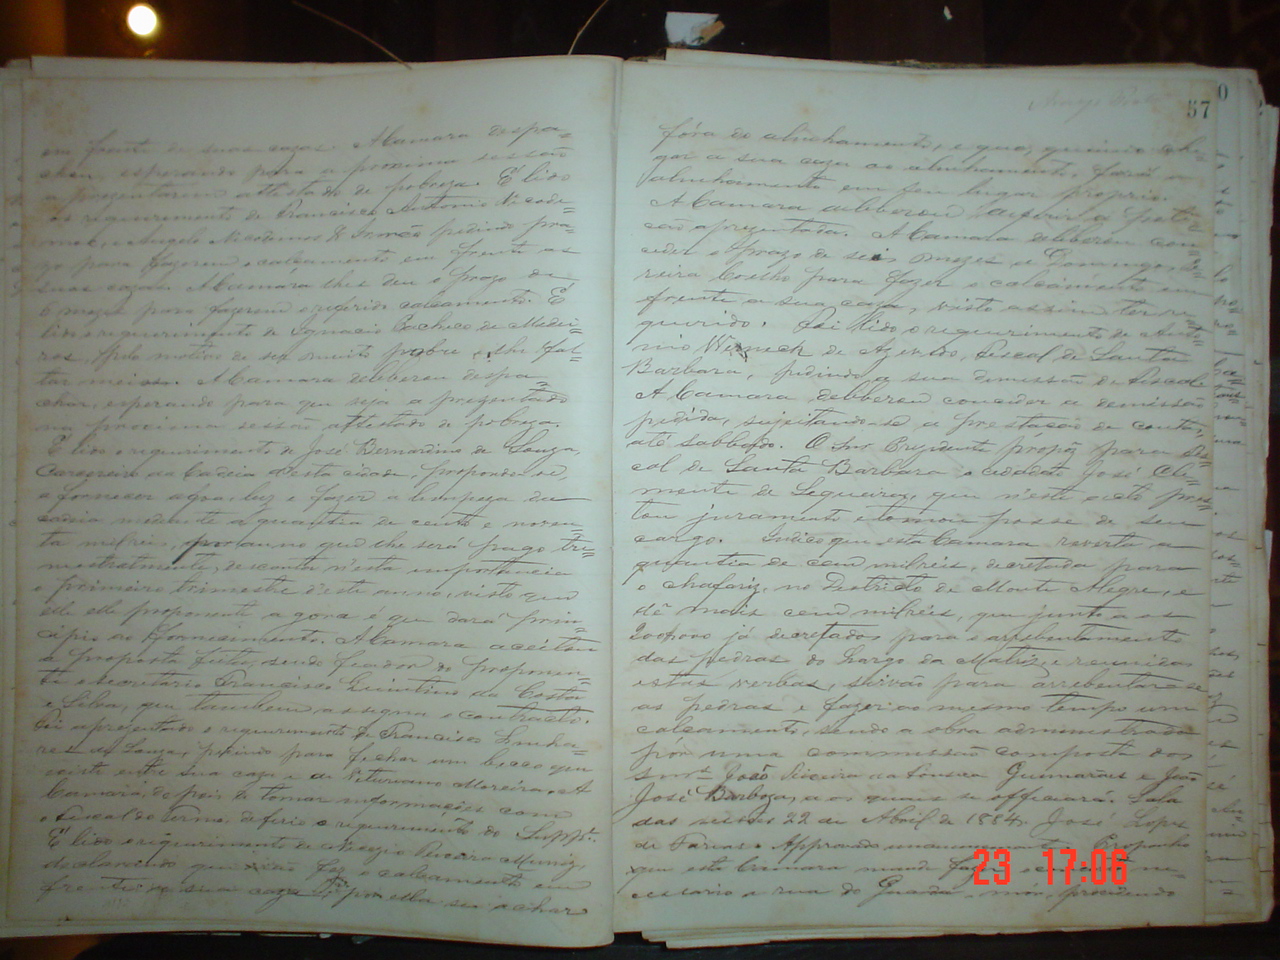 em frente de suas cazas. A Camara despa=
chou esperando para a proxima sessão
a prezentarem attestado de pobreza. É lido
o requerimento de Francisco Antonio Nicode=
mos, e Angelo Nicodemos & Irmão pedindo pra=
zo para fazerem o calçamento em frente as
suas cazas. A Camara lhes deu o prazo de
6 mezes para fazerem o referido calçamento. É
lido o requerimento de Ignacio Pacheco de Medei=
ros, pelo motivo de ser muito pobre e lhe fal=
tar meios. A Camara deliberou despa=
char, esperando para que seja a prezentado
na proxima sessão attestado de pobreza.
É lido o requerimento de José Bernardino de Souza,
Carcereiro da Cadeia d'esta cidade, propondo-se
a fornecer agua, luz e fazer a limpeza da
cadeia mediante a quantia de cento e noven=
ta mil reis, por anno que lhe será pago tri=
mestralmente, n'esta importancia
o primeiro trimestre d'este anno, visto que
elle proponente a gora é que dará prin=
cipio ao fornecimento. A Camara aceitou
a proposta feita, sendo fiador do proponen=
te o secretario Francisco Quintino da Costa
e Silva, que tambem assigna o contracto.
Foi apresentado o requerimento de Francisco
de Souza, pedindo para fechar um becco que
existe entre sua caza e a de Victuriano Moreira. A
Camara, depois de tomar informações com
o Fiscal do Termo, deferio o requerimento do Suppe.
É lido o requerimento de Pereira Muniz,
declarando que não fez o calçamento em
frente de sua caza por ella se achar
57
fóra do alinhamento, e que, quando che=
gar a sua caza ao alinhamento, fará o
alinhamento em seu lugar proprio.
A Camara deliberou deferir a peti=
ção apresentada. A Camara deliberou con=
ceder o prazo de seis mezes a Domingos
reira Coelho para fazer o calçamento em
frente a sua caza, visto assim ter re=
querido. Foi lido o requerimento de Anto=
nio Werneck de Azevedo, Fiscal de Santa
Barbara, pedindo a sua demissão de Fiscal.
A Camara deliberou conceder a demissão
pedida, sujeitando-se a prestação de contas
até sabbado. O Snr Prezidente propôz para Fis=
cal de Santa Barbara o cidadão José Cle=
mente de Sequeira, que n'este acto pres=
tou juramento e tomou posse de seu
cargo. Indico que esta Camara reverta a
quantia de cem milréis, decretada para
o chafariz, no Districto de Monte Alegre, e
dê mais cem milréis, que junto aos
já decretados para o arrebentamento
das pedras do Largo da Matriz, e reunidas
estas verbas, sirvão para arrebentar-se
as pedras e fazer ao mesmo tempo um
calçamento, sendo a obra administrada
por uma commissão composta dos
Snrs João Pereira da Fonseca Guimarães e João
José Barboza, a os quaes se officiará. Sala
das sessões 22 de Abril de 1884. José Lopes
de Farias. Approvado unanimemente. Proponho
que esta Camara mande fazer o ne=
cessario a rua do Guarda-mór, precedendo
23 17:06